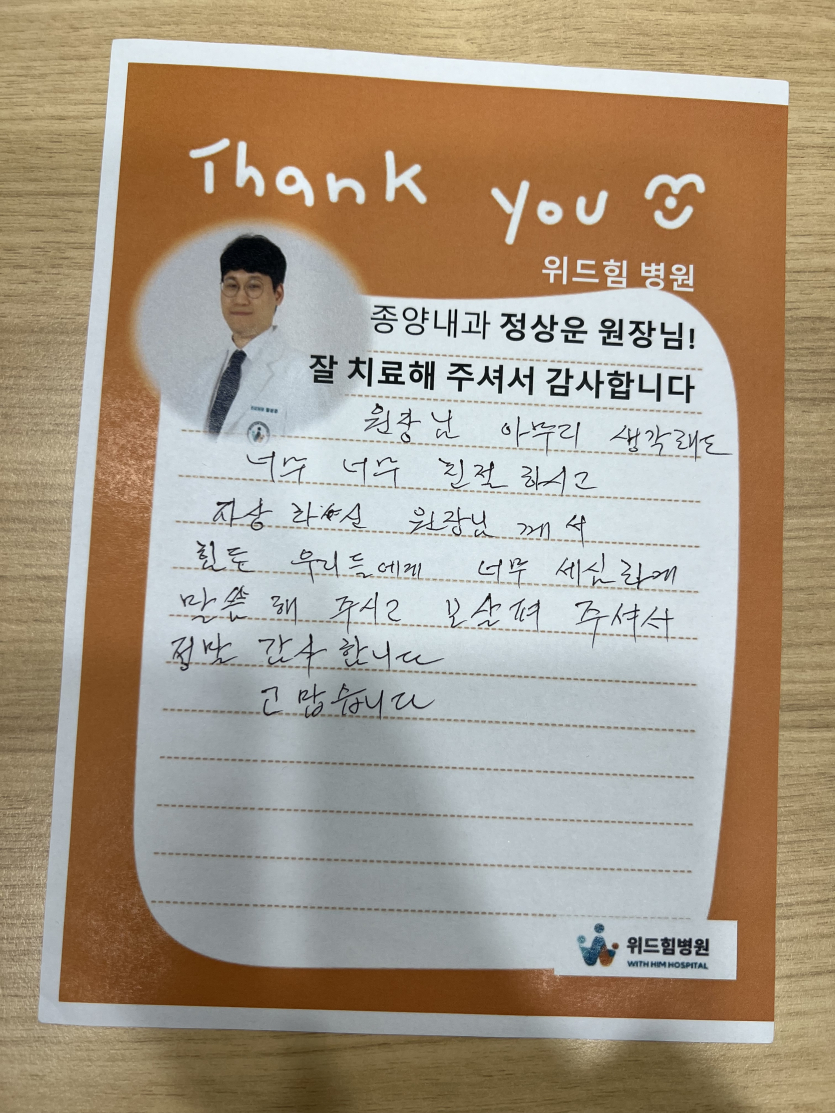 Thank you
위드힘 병원
종양내과 정상운 원장님!
잘 치료해 주셔서 감사합니다
원장님 아무리 생각해도
너무 너무 친절 하시고
자상 하신 원장님 께서
힘든 우리들에게 너무 세심하게
말씀 해 주시고 보살펴 주셔서
정말 감사 합니다
고맙습니다
위드힘병원
WITH HIM HOSPITAL